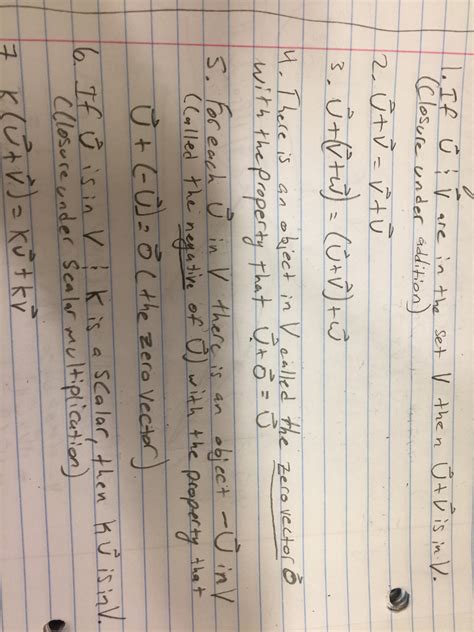 1. If u⃗ & v⃗ are in the set V then u⃗+v⃗ is in V.
(closure under addition)
2. u⃗+v⃗ = v⃗+u⃗
3. u⃗+(v⃗+w⃗) = (u⃗+v⃗)+w⃗
4. There is an object in V called the zero vector 0⃗
with the property that u⃗+0⃗ = u⃗
5. For each u⃗ in V there is an object -u⃗ in V
(called the negative of u⃗) with the property that
u⃗ + (-u⃗) = 0⃗ (the zero vector)
6. If u⃗ is in V & k is a scalar, then ku⃗ is in V.
(Closure under scalar multiplication)
7 k(u⃗+v⃗) = ku⃗+kv⃗